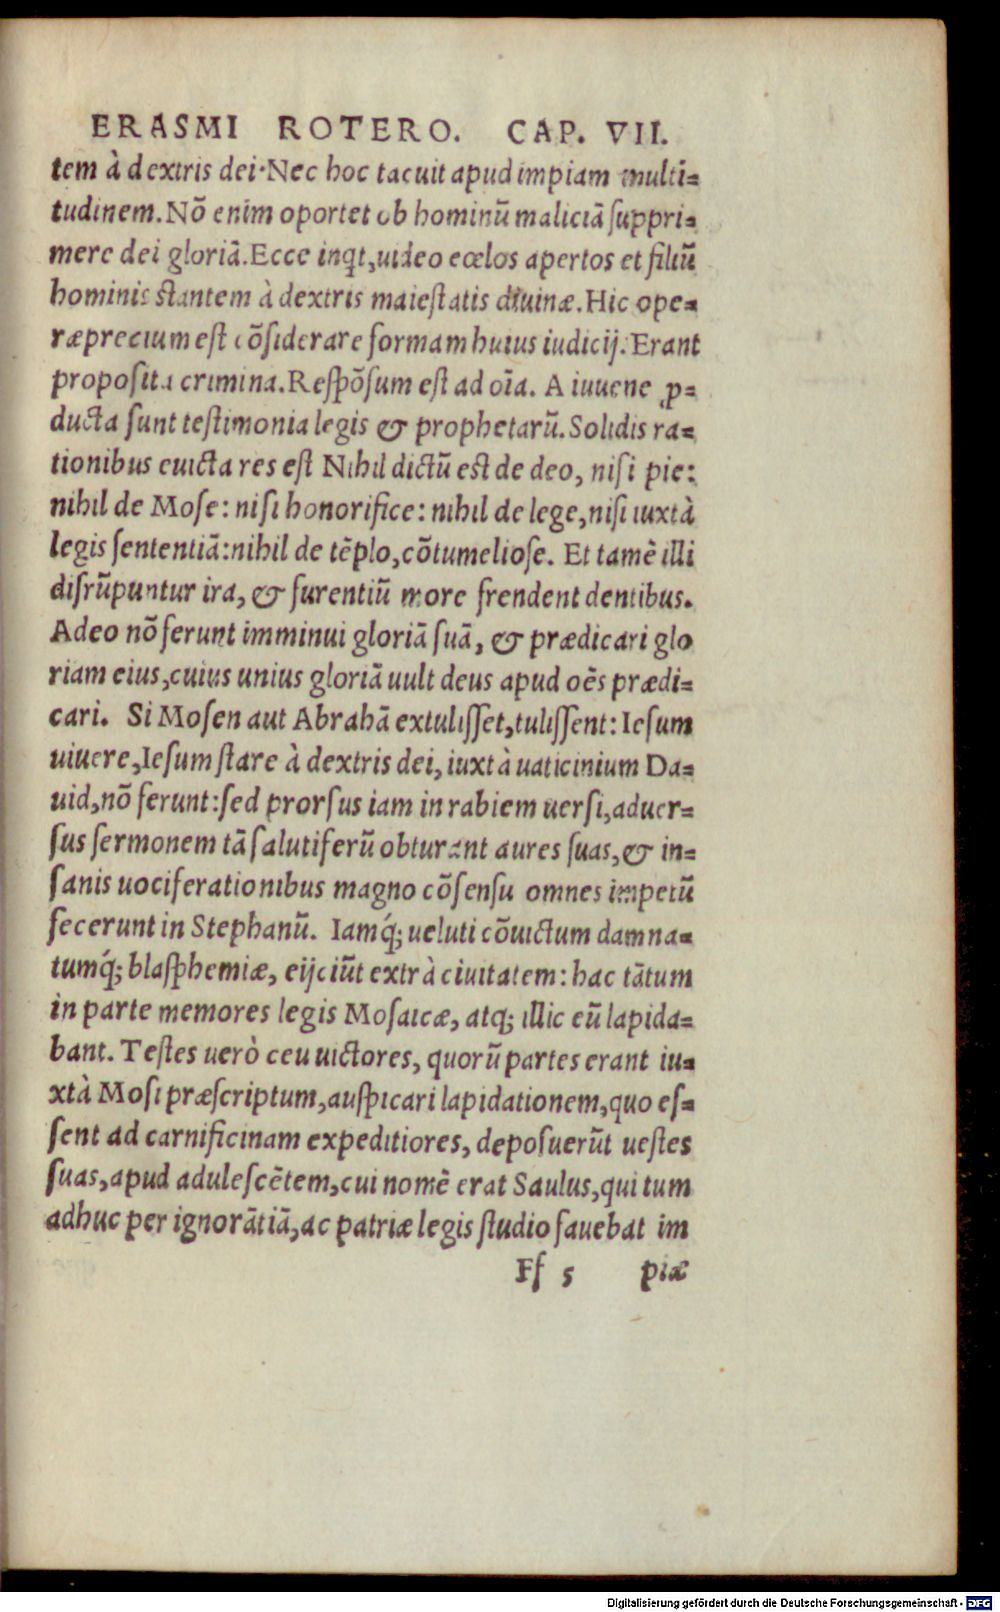 ERASMI ROTERO. CAP. VII.
tem à dextris dei. Nec hoc tacuit apud impiam multi=
tudinem. Nō enim oportet ob hominū maliciā suppri=
mere dei gloriā. Ecce inqt, uideo cœlos apertos et filiū
hominis stantem à dextris maiestatis diuinæ. Hic ope=
ræprecium est cōsiderare formam huius iudicij. Erant
proposita crimina. Respōsum est ad oīa. A iuuene p=
ducta sunt testimonia legis & prophetarū. Solidis ra=
tionibus euicta res est Nihil dictū est de deo, nisi pie:
nihil de Mose: nisi honorifice: nihil de lege, nisi iuxtà
legis sententiā: nihil de tēplo, cōtumeliose. Et tamē illi
disrūpuntur ira, & furentiū more frendent dentibus.
Adeo nō ferunt imminui gloriā suā, & prædicari glo
riam eius, cuius unius gloriā uult deus apud oēs prædi=
cari. Si Mosen aut Abrahā extulisset, tulissent: Iesum
uiuere, Iesum stare à dextris dei, iuxtà uaticinium Da=
uid, nō ferunt: sed prorsus iam in rabiem uersi, aduer=
sus sermonem tā salutiferū obturant aures suas, & in=
sanis uociferationibus magno cōsensu omnes impetū
fecerunt in Stephanū. Iamq́; ueluti cōuictum damna=
tumq́; blasphemiæ, eijciūt extrà ciuitatem: hac tātum
in parte memores legis Mosaicæ, atq; illic eū lapida=
bant. Testes uerò ceu uictores, quorū partes erant iu=
xtà Mosi præscriptum, auspicari lapidationem, quo es=
sent ad carnificinam expeditiores, deposuerūt uestes
suas, apud adulescētem, cui nomē erat Saulus, qui tum
adhuc per ignorātiā, ac patriæ legis studio fauebat im
Ff 5 piæ
Digitalisierung gefördert durch die Deutsche Forschungsgemeinschaft - DFG